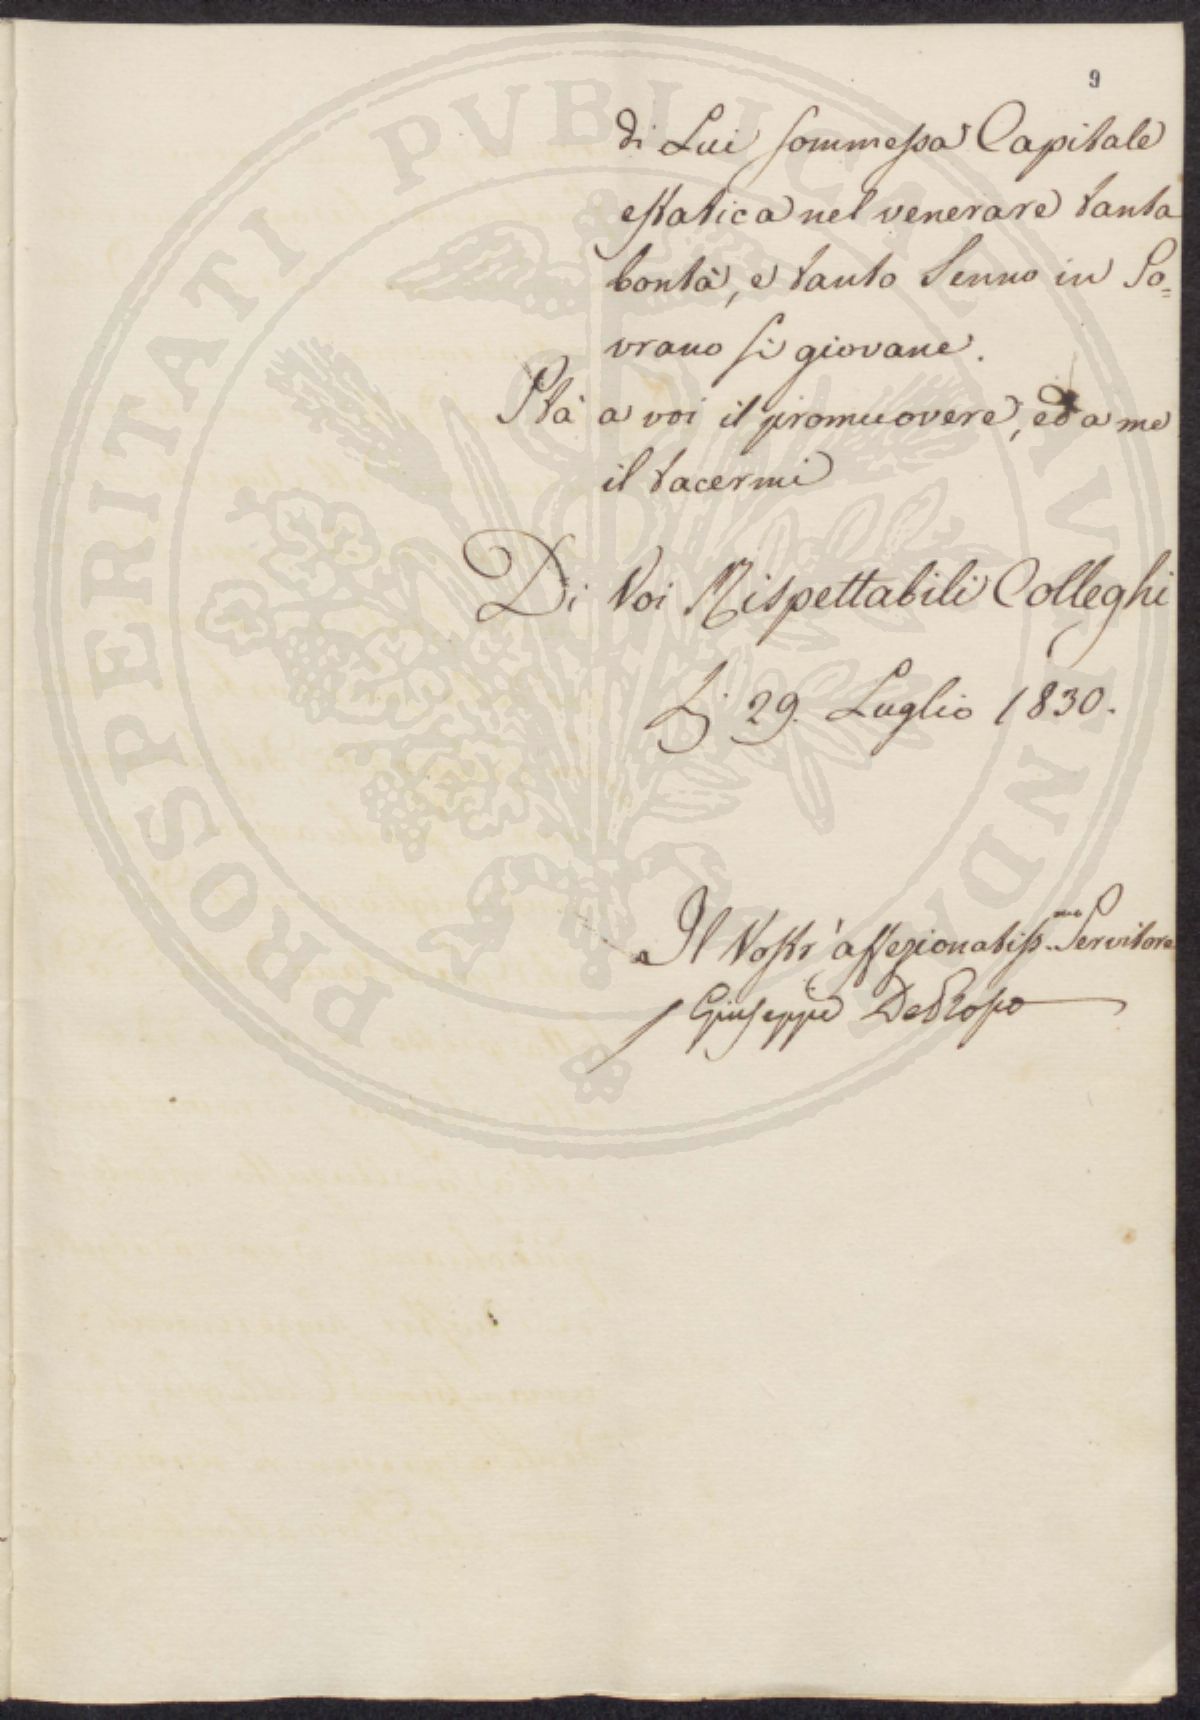 9
di Lui sommessa Capitale
estatica nel venerare tanta
bontà, e tanto Senno in So=
vrano sì giovane.
Stà a voi il promuovere, ed a me
il tacermi
Di Voi Rispettabili Colleghi
Li 29. Luglio 1830.
Il Vostr' affezionatiss.mo Servitore
Giuseppe DeRoso
PROSPERITATI PVBLICAE AVGENDAE